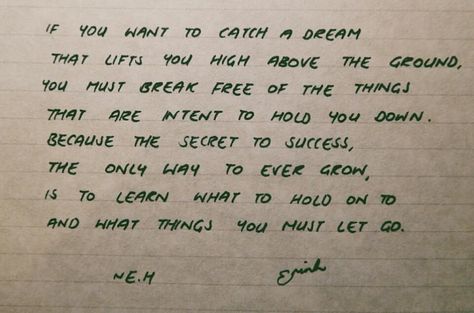 IF YOU WANT TO CATCH A DREAM
THAT LIFTS YOU HIGH ABOVE THE GROUND,
YOU MUST BREAK FREE OF THE THINGS
THAT ARE INTENT TO HOLD YOU DOWN.
BECAUSE THE SECRET TO SUCCESS,
THE ONLY WAY TO EVER GROW,
IS TO LEARN WHAT TO HOLD ON TO
AND WHAT THINGS YOU MUST LET GO.
~E.H